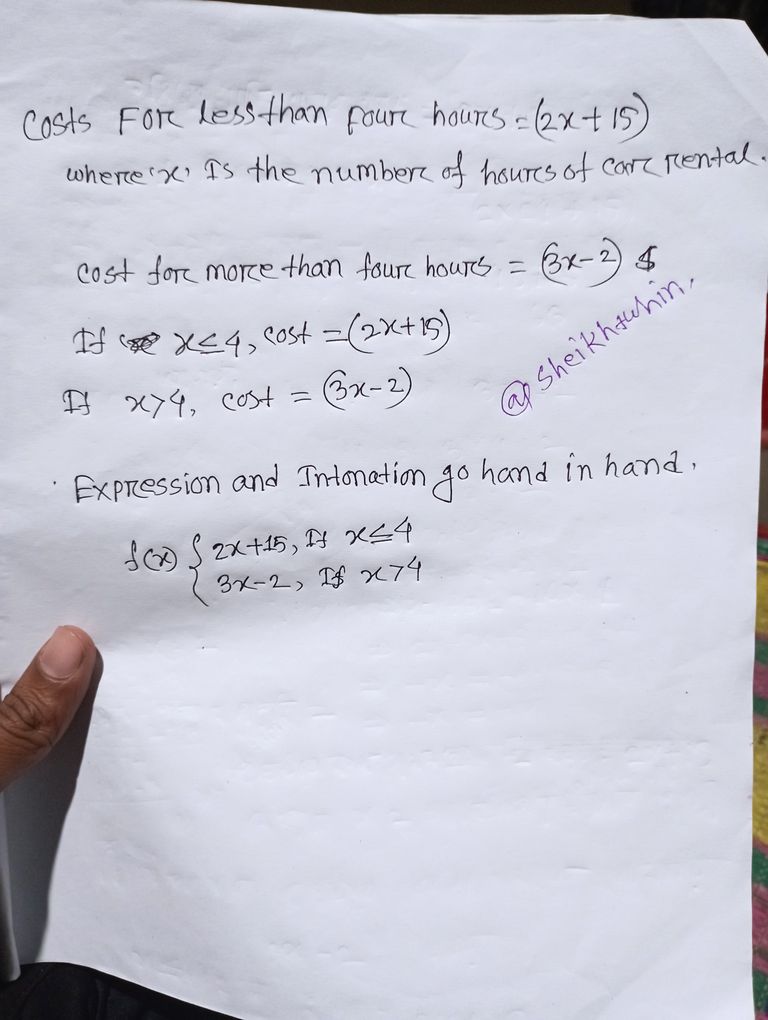 Costs For less than four hours = (2x + 15)
where 'x' Is the number of hours of car rental.
cost for more than four hours = (3x - 2) $
If x ≤ 4, cost = (2x + 15)
If x > 4, cost = (3x - 2)
@sheikhtuhin.
Expression and Intonation go hand in hand.
f(x) { 2x + 15, If x ≤ 4
3x - 2, If x > 4